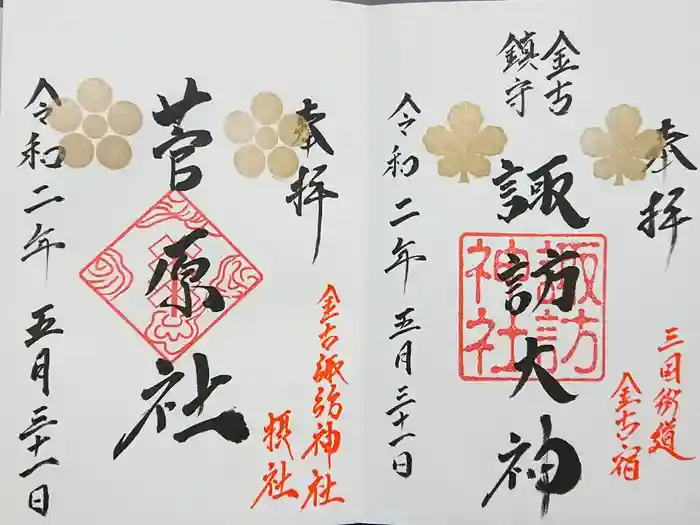 奉拝
三国街道
金古宿
金古
鎮守
諏訪大神
諏訪
神社
令和二年五月三十一日
奉拝
金古諏訪神社
摂社
菅原社
令和二年五月三十一日